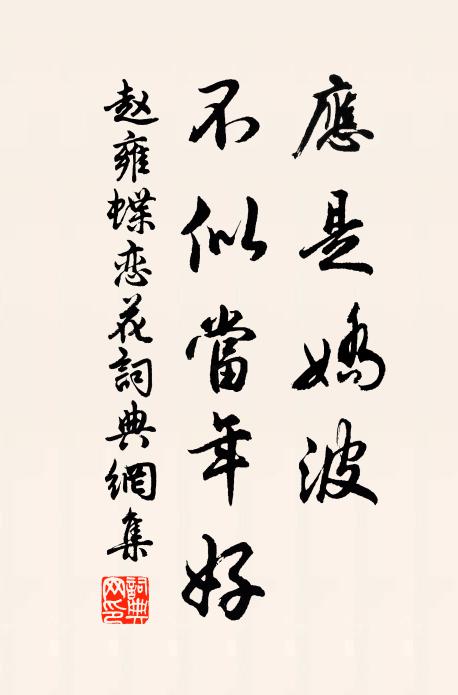 應是嬌波
不似當年好
赵雍蝶恋花詞典網集
詞典网印